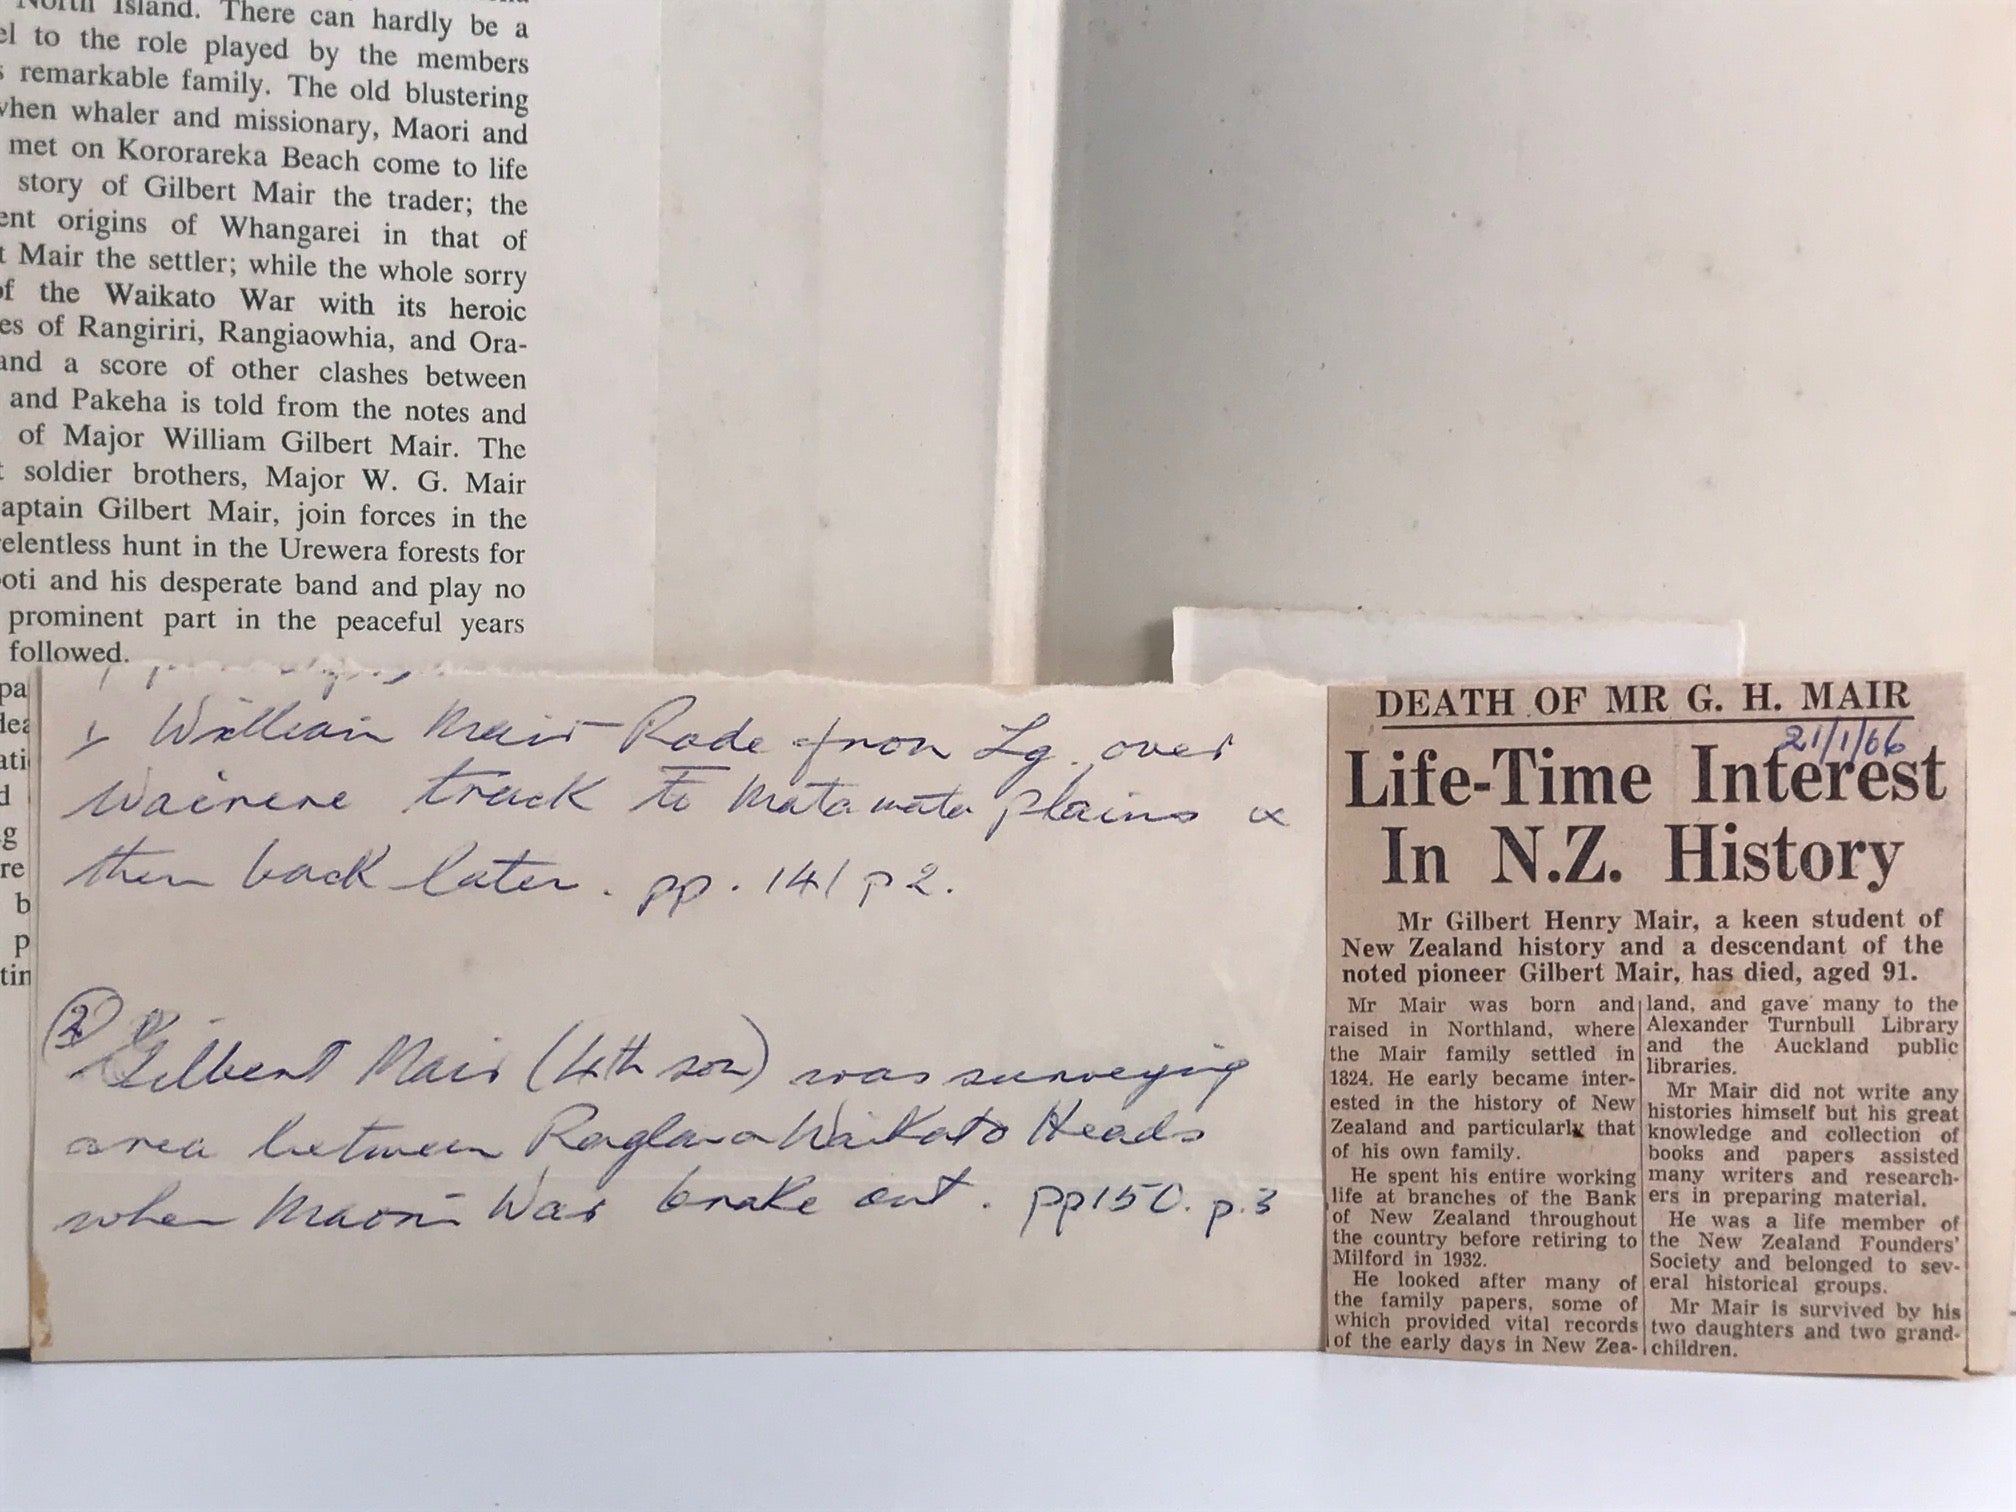 North Island. There can hardly be a
el to the role played by the members
s remarkable family. The old blustering
when whaler and missionary, Maori and
met on Kororareka Beach come to life
story of Gilbert Mair the trader; the
ent origins of Whangarei in that of
t Mair the settler; while the whole sorry
of the Waikato War with its heroic
es of Rangiriri, Rangiaowhia, and Ora-
and a score of other clashes between
and Pakeha is told from the notes and
of Major William Gilbert Mair. The
t soldier brothers, Major W. G. Mair
aptain Gilbert Mair, join forces in the
relentless hunt in the Urewera forests for
oti and his desperate band and play no
prominent part in the peaceful years
followed.
pa
dea
ati
d
g
re
b
p
tin
William Mair Rode from Lg. over
Wairere track to Matamata plains &
then back later. pp. 141 p2.
(2) Gilbert Mair (4th son) was surveying
area between Raglan & Waikato Heads
when Maori War broke out. pp150. p.3
DEATH OF MR G. H. MAIR
21/1/66
Life-Time Interest
In N.Z. History
Mr Gilbert Henry Mair, a keen student of
New Zealand history and a descendant of the
noted pioneer Gilbert Mair, has died, aged 91.
Mr Mair was born and
raised in Northland, where
the Mair family settled in
1824. He early became inter-
ested in the history of New
Zealand and particularly that
of his own family.
He spent his entire working
life at branches of the Bank
of New Zealand throughout
the country before retiring to
Milford in 1932.
He looked after many of
the family papers, some of
which provided vital records
of the early days in New Zea-
land, and gave many to the
Alexander Turnbull Library
and the Auckland public
libraries.
Mr Mair did not write any
histories himself but his great
knowledge and collection of
books and papers assisted
many writers and research-
ers in preparing material.
He was a life member of
the New Zealand Founders'
Society and belonged to sev-
eral historical groups.
Mr Mair is survived by his
two daughters and two grand-
children.